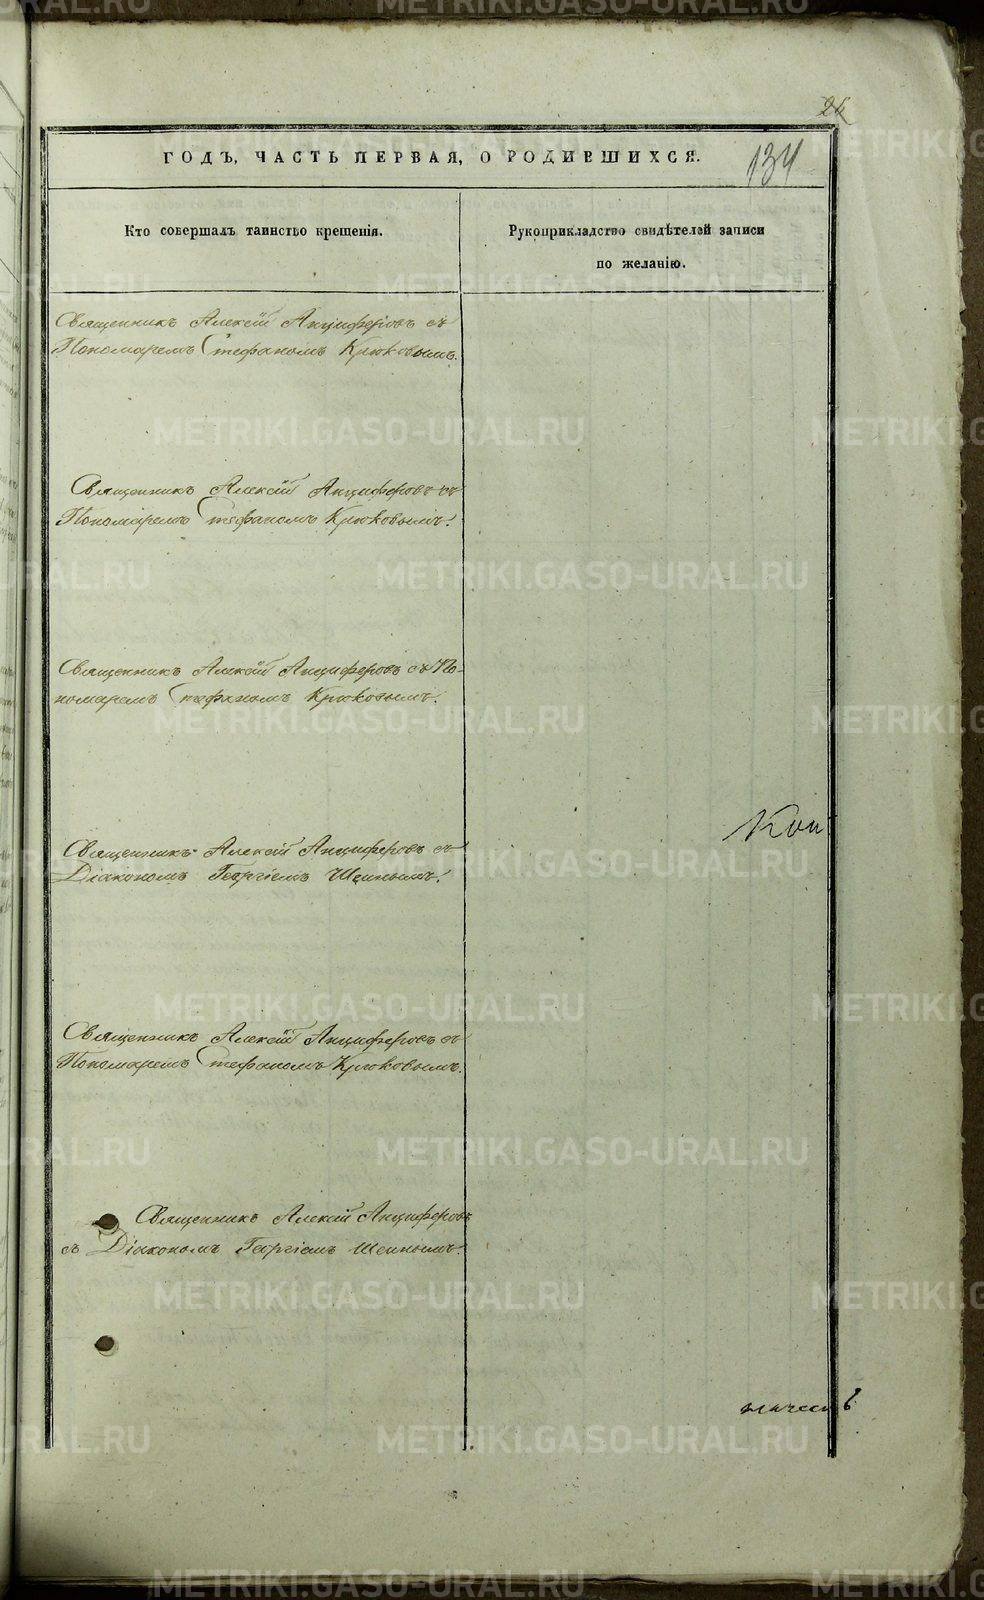 134
ГОДЪ, ЧАСТЬ ПЕРВАЯ, О РОДИВШИХСЯ.
Кто совершалъ таинство крещенія.
Рукоприкладство свидѣтелей записи
по желанію.
Священникъ Алексій Анциферовъ съ
Пономаремъ Стефаномъ Крюковымъ.
Священникъ Алексій Анциферовъ съ
Пономаремъ Стефаномъ Крюковымъ.
Священникъ Алексій Анциферовъ съ По-
номаремъ Стефаномъ Крюковымъ.
Священникъ Алексій Анциферовъ съ
Діакономъ Георгіемъ
Священникъ Алексій Анциферовъ съ
Пономаремъ Стефаномъ Крюковымъ.
Священникъ Алексій Анциферовъ
съ Діакономъ Георгіемъ
METRIKI.GASO-URAL.RU